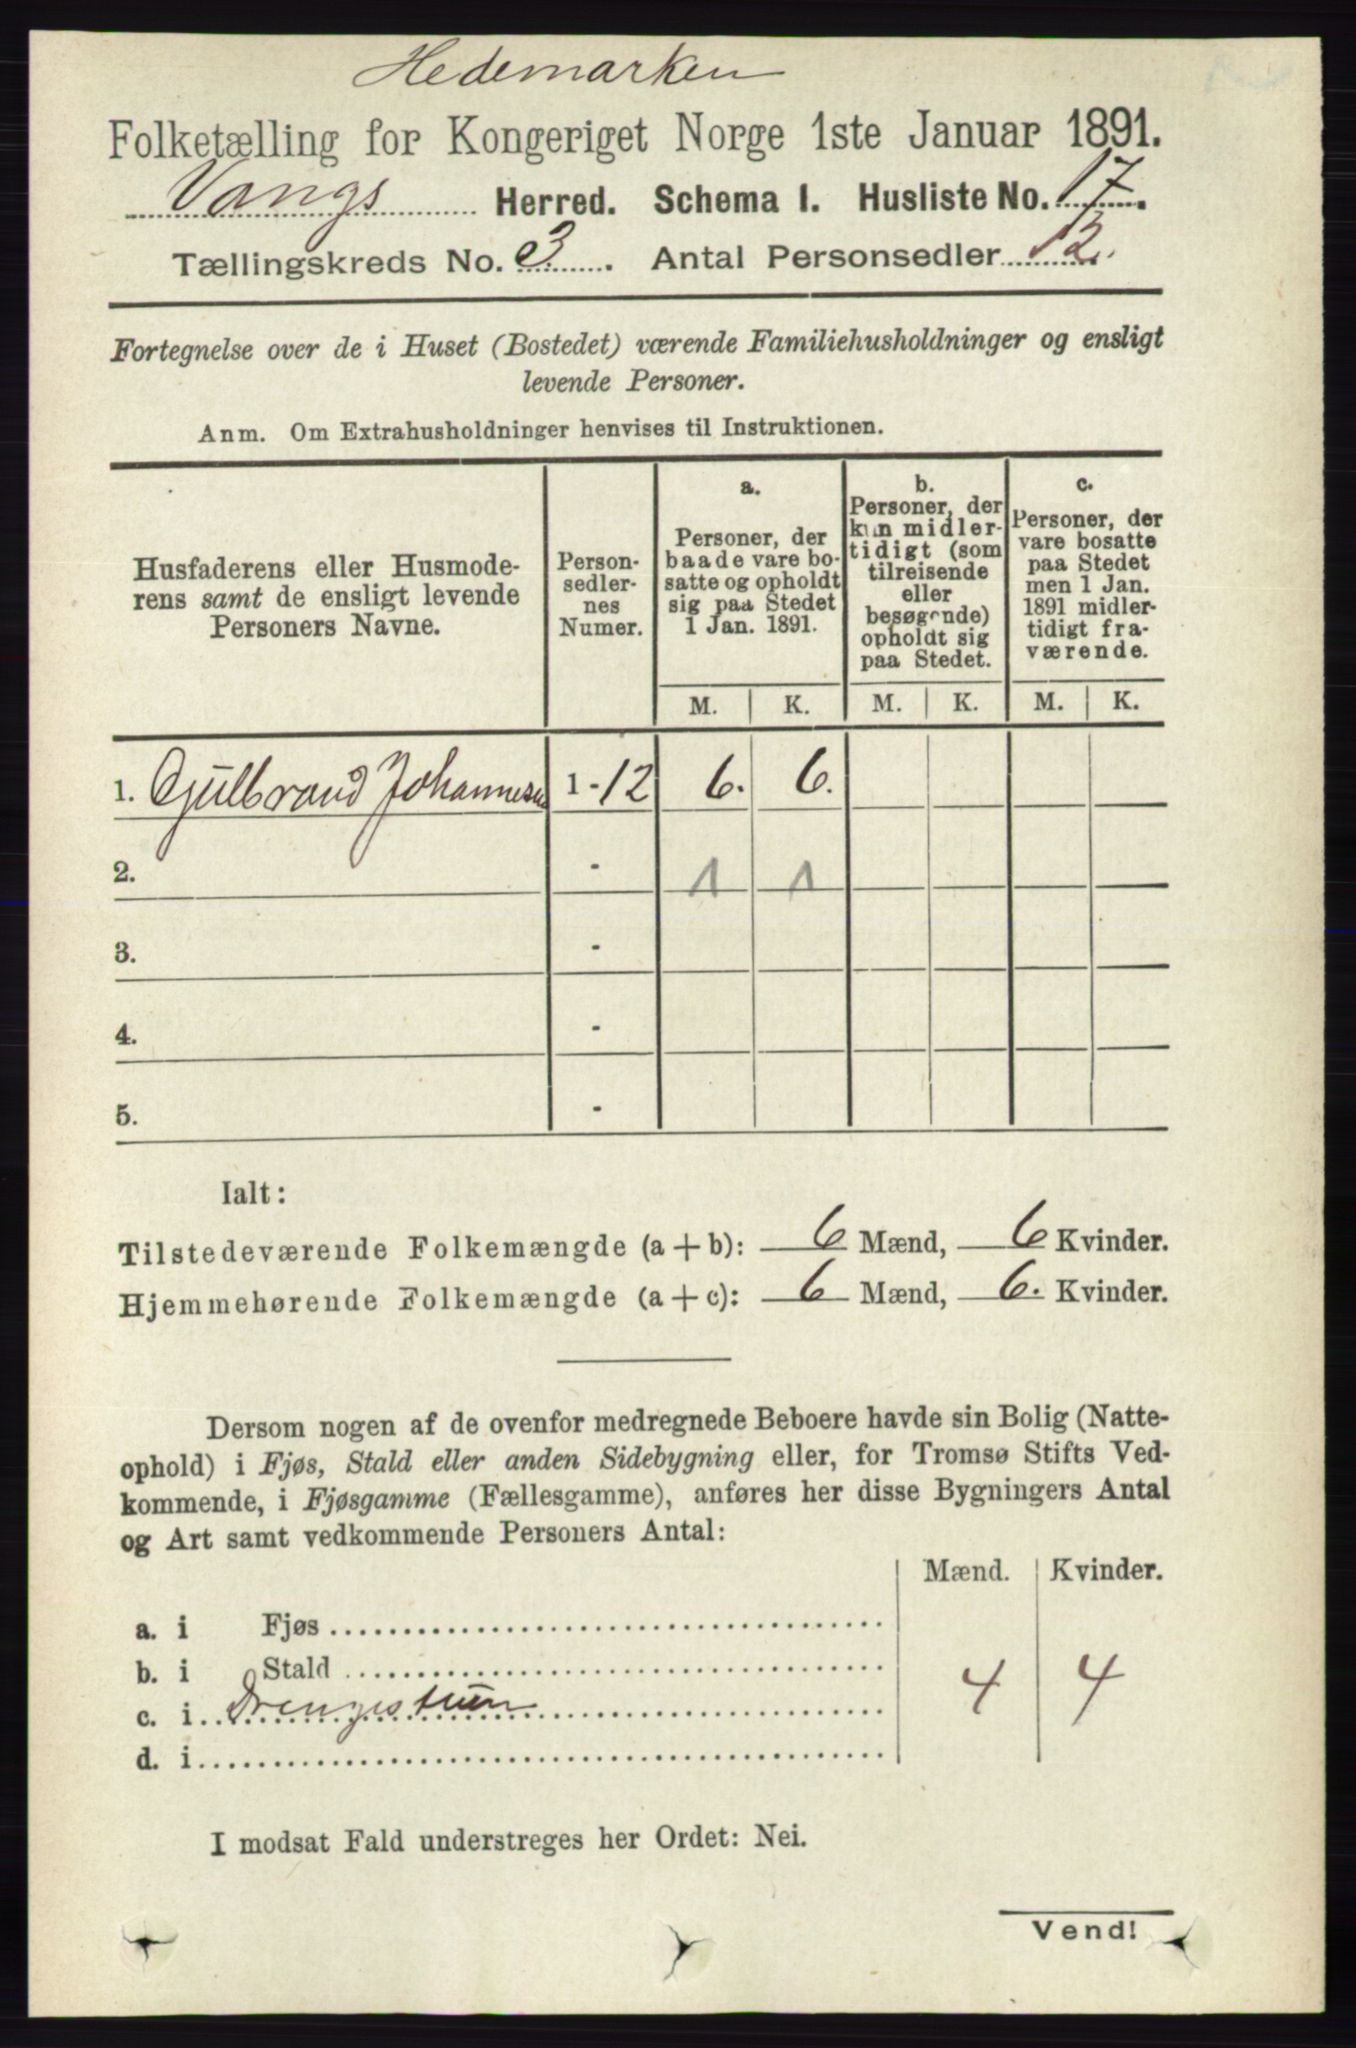 Hedemarken
Folketælling for Kongeriget Norge 1ste Januar 1891.
Vangs Herred. Schema I. Husliste No. 17.
Tællingskreds No. 3. Antal Personsedler 12.
Fortegnelse over de i Huset (Bostedet) værende Familiehusholdninger og ensligt
levende Personer.
Anm. Om Extrahusholdninger henvises til Instruktionen.
Husfaderens eller Husmode-
rens samt de ensligt levende
Personers Navne.
Person-
sedler-
nes
Numer.
a.
Personer, der
baade vare bo-
satte og opholdt
sig paa Stedet
1 Jan. 1891.
b.
Personer, der
kun midler-
tidigt (som
tilreisende
eller
besøgende)
opholdt sig
paa Stedet.
c.
Personer, der
vare bosatte
paa Stedet
men 1 Jan.
1891 midler-
tidigt fra-
værende.
M. K. M. K. M. K.
1. Gulbrand Johannesen 1 - 12 6. 6.
2. - 1 1
3. -
4. -
5. -
Ialt:
Tilstedeværende Folkemængde (a + b): 6 Mænd, 6 Kvinder.
Hjemmehørende Folkemængde (a + c): 6 Mænd, 6. Kvinder.
Dersom nogen af de ovenfor medregnede Beboere havde sin Bolig (Natte-
ophold) i Fjøs, Stald eller anden Sidebygning eller, for Tromsø Stifts Ved-
kommende, i Fjøsgamme (Fællesgamme), anføres her disse Bygningers Antal
og Art samt vedkommende Personers Antal:
Mænd. Kvinder.
a. i Fjøs
b. i Stald
c. i Drengestuen 4 4
d. i
I modsat Fald understreges her Ordet: Nei.
Vend!